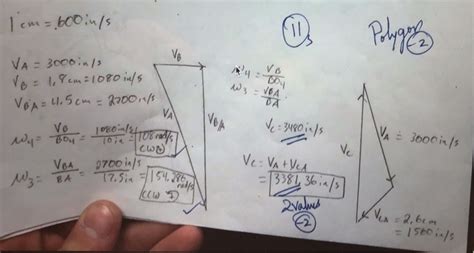 1 cm = 600 in/s
VA = 3000 in/s
VB = 1,8cm = 1080 in/s
VB/A = 4.5cm = 2700 in/s
ω4 = VB/BO4 = 1080 in/s / 10 in = 108 rad/s
CCW
ω3 = VBA/BA = 2700 in/s / 17.5in = 154.280 rad/s
CCW
VB
VA
VB/A
11
Polygon
-2
ω4 = VB/BO4
ω3 = VBA/BA
VC = 3480 in/s
VC = VA + VCA
= 3381,36 in/s
2 values
-2
VC
VA = 3000 in/s
VCA = 2,6cm
= 1560 in/s